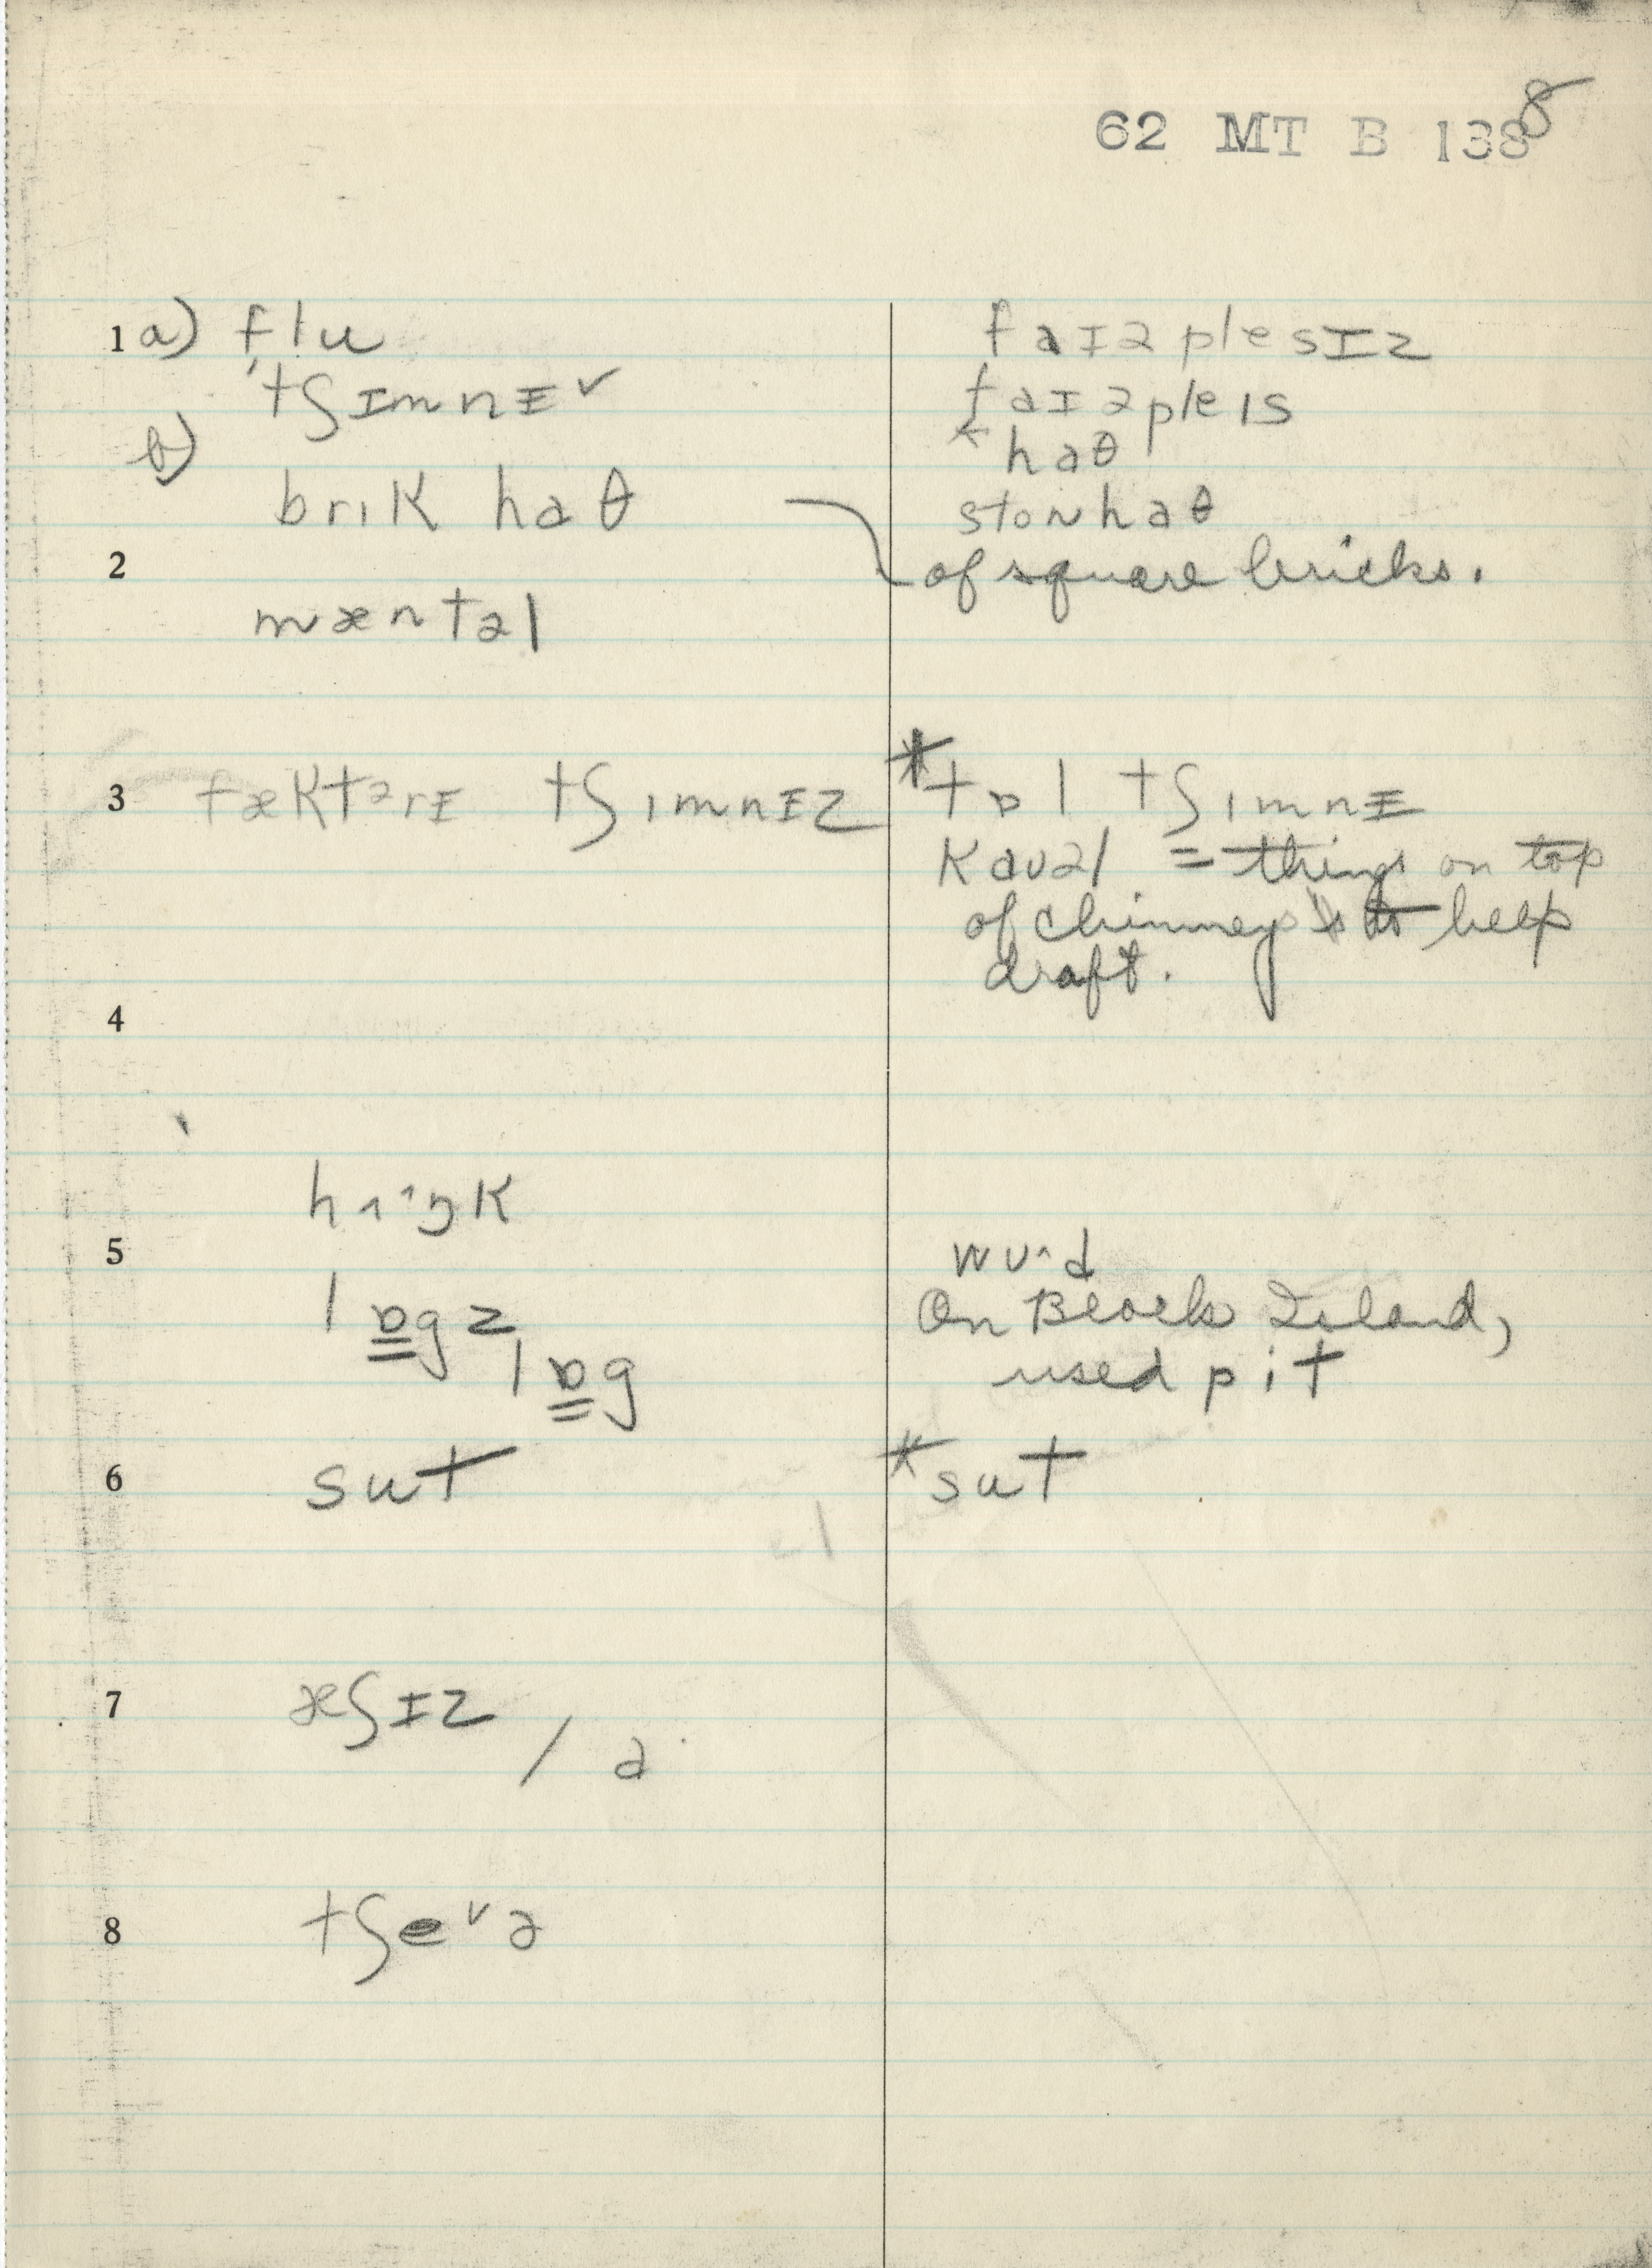 62 MT B 138 8
1 a) flu
ˈtʃɪmnɪ ˅
b)
brɪk haθ
2
mæntəl
3 fæktərɪ tʃɪmnɪz
4
hʌˆŋk
5
lɒ̳gz
lɒ̳g
6 sut
7 æʃɪz
/ a
8 tʃe˅ə
faɪəplesɪz
faɪəpleɪs
← haθ
stonhaθ
of square bricks.
* tɒl tʃɪmnɪ
kaʊəl = things on top
of chimney to help
draft.
wʊˆd
On Block Island,
used pit
* sut